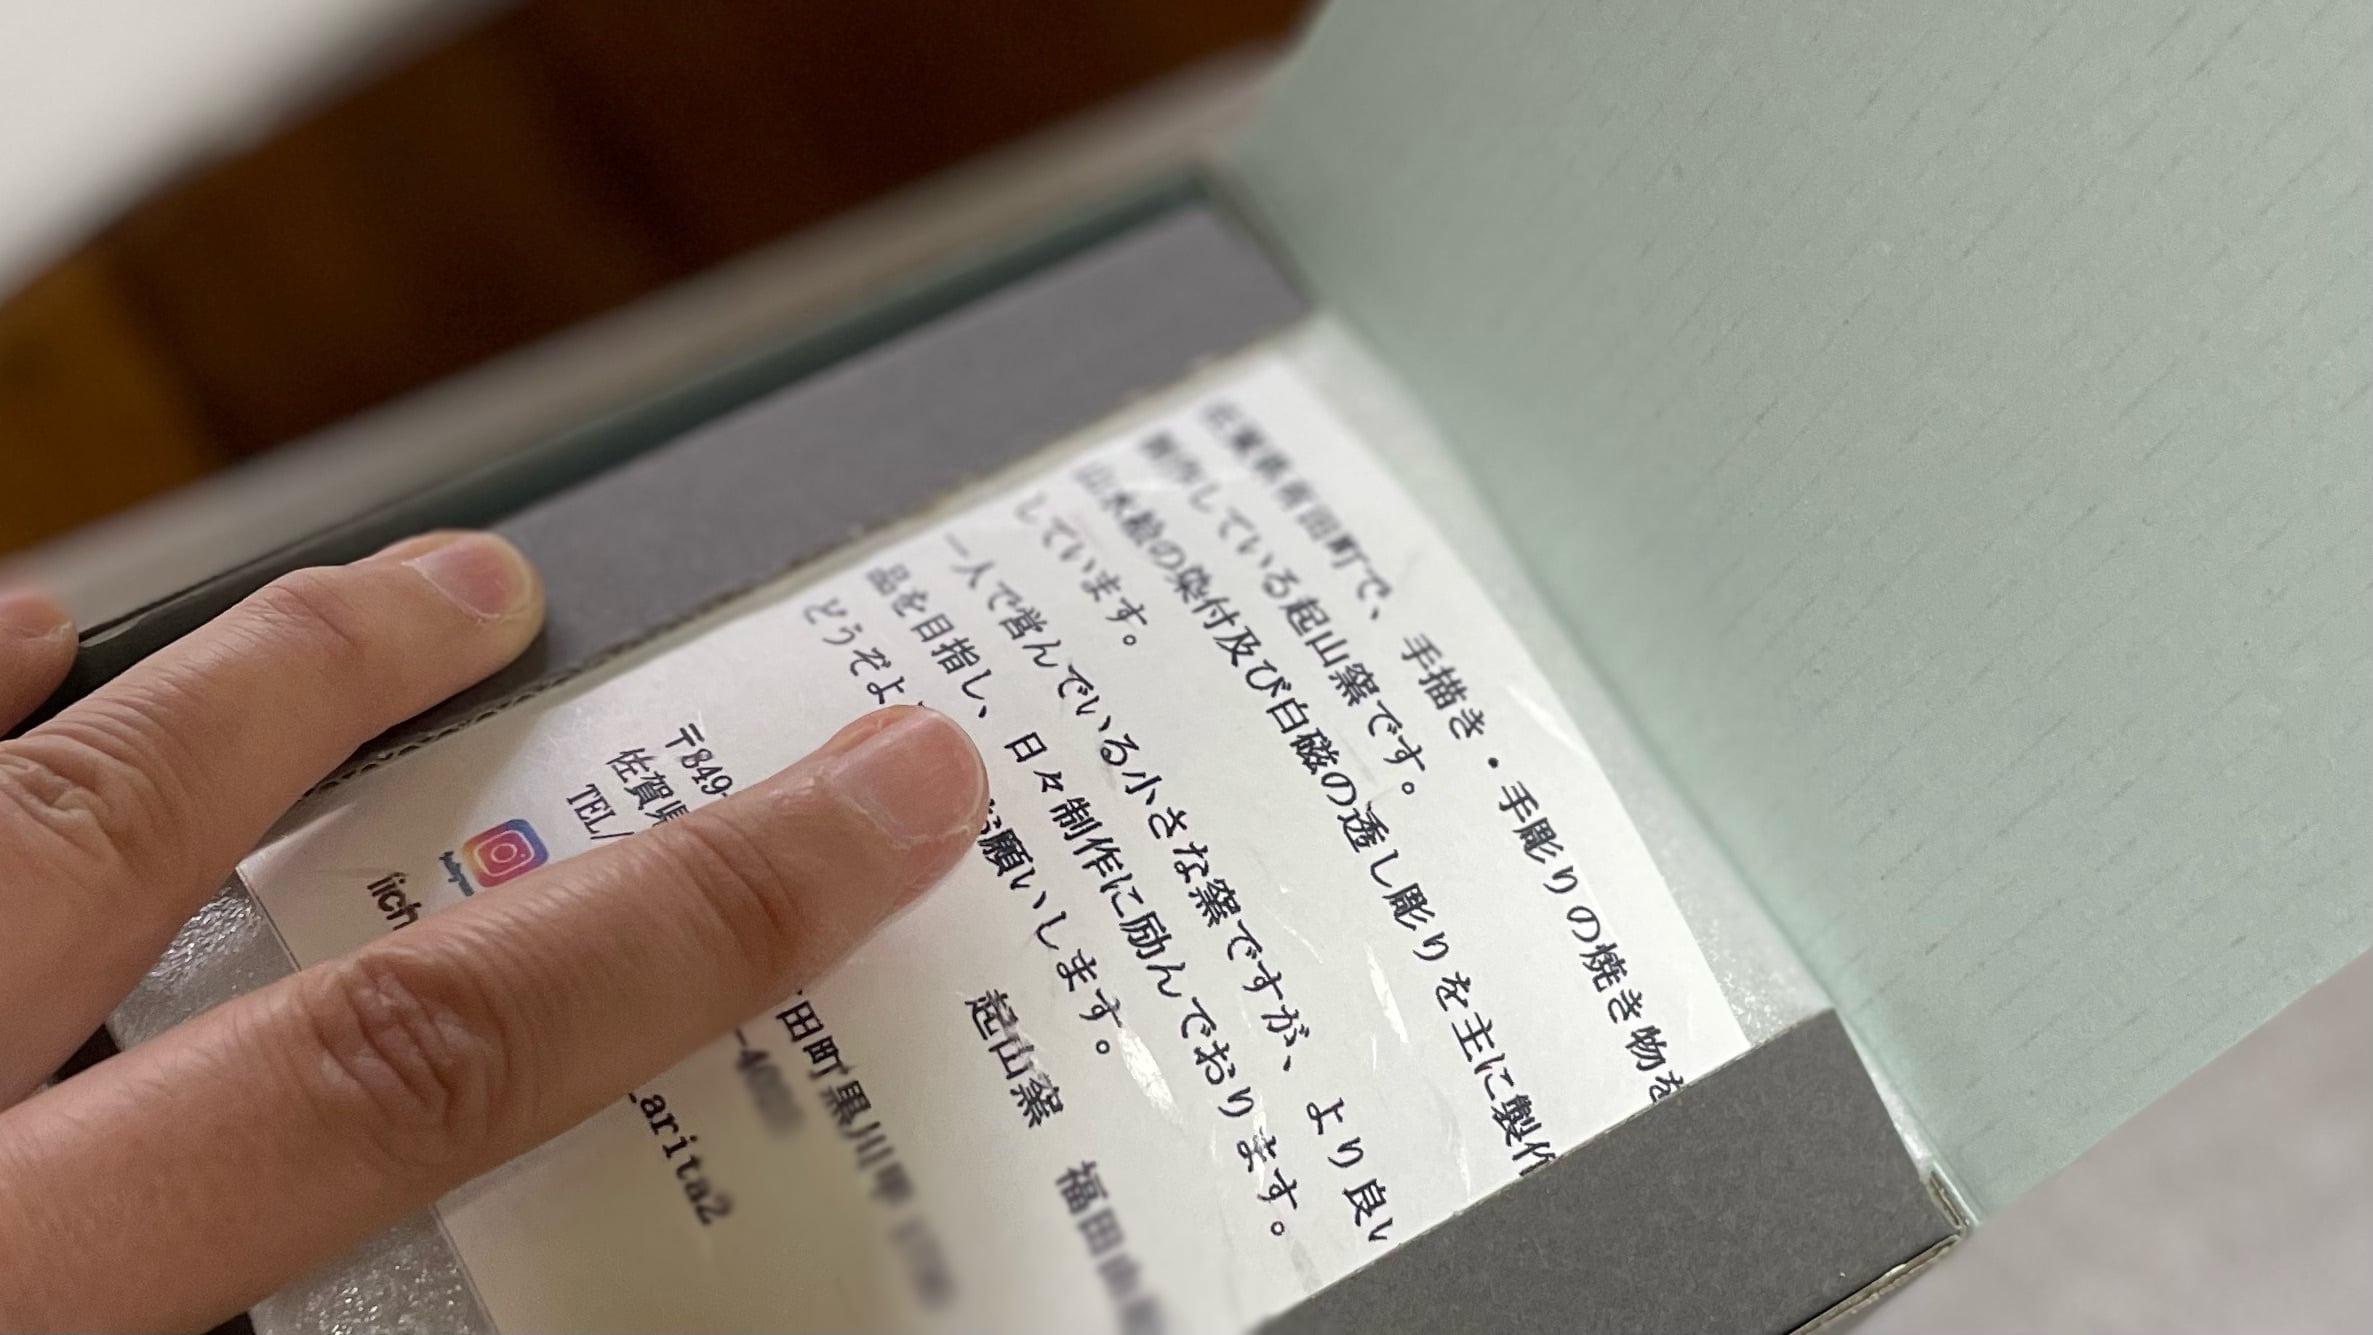 佐賀県有田町で、手描き・手彫りの焼き物を
製作している起山窯です。
山水絵の染付及び白磁の透し彫りを主に製作
しています。
一人で営んでいる小さな窯ですが、より良い
品を目指し、日々制作に励んでおります。
どうぞよ お願いします。
起山窯 福田
〒849-
佐賀県 田町黒川甲
TEL/ -40
Instagram
iich _arita2